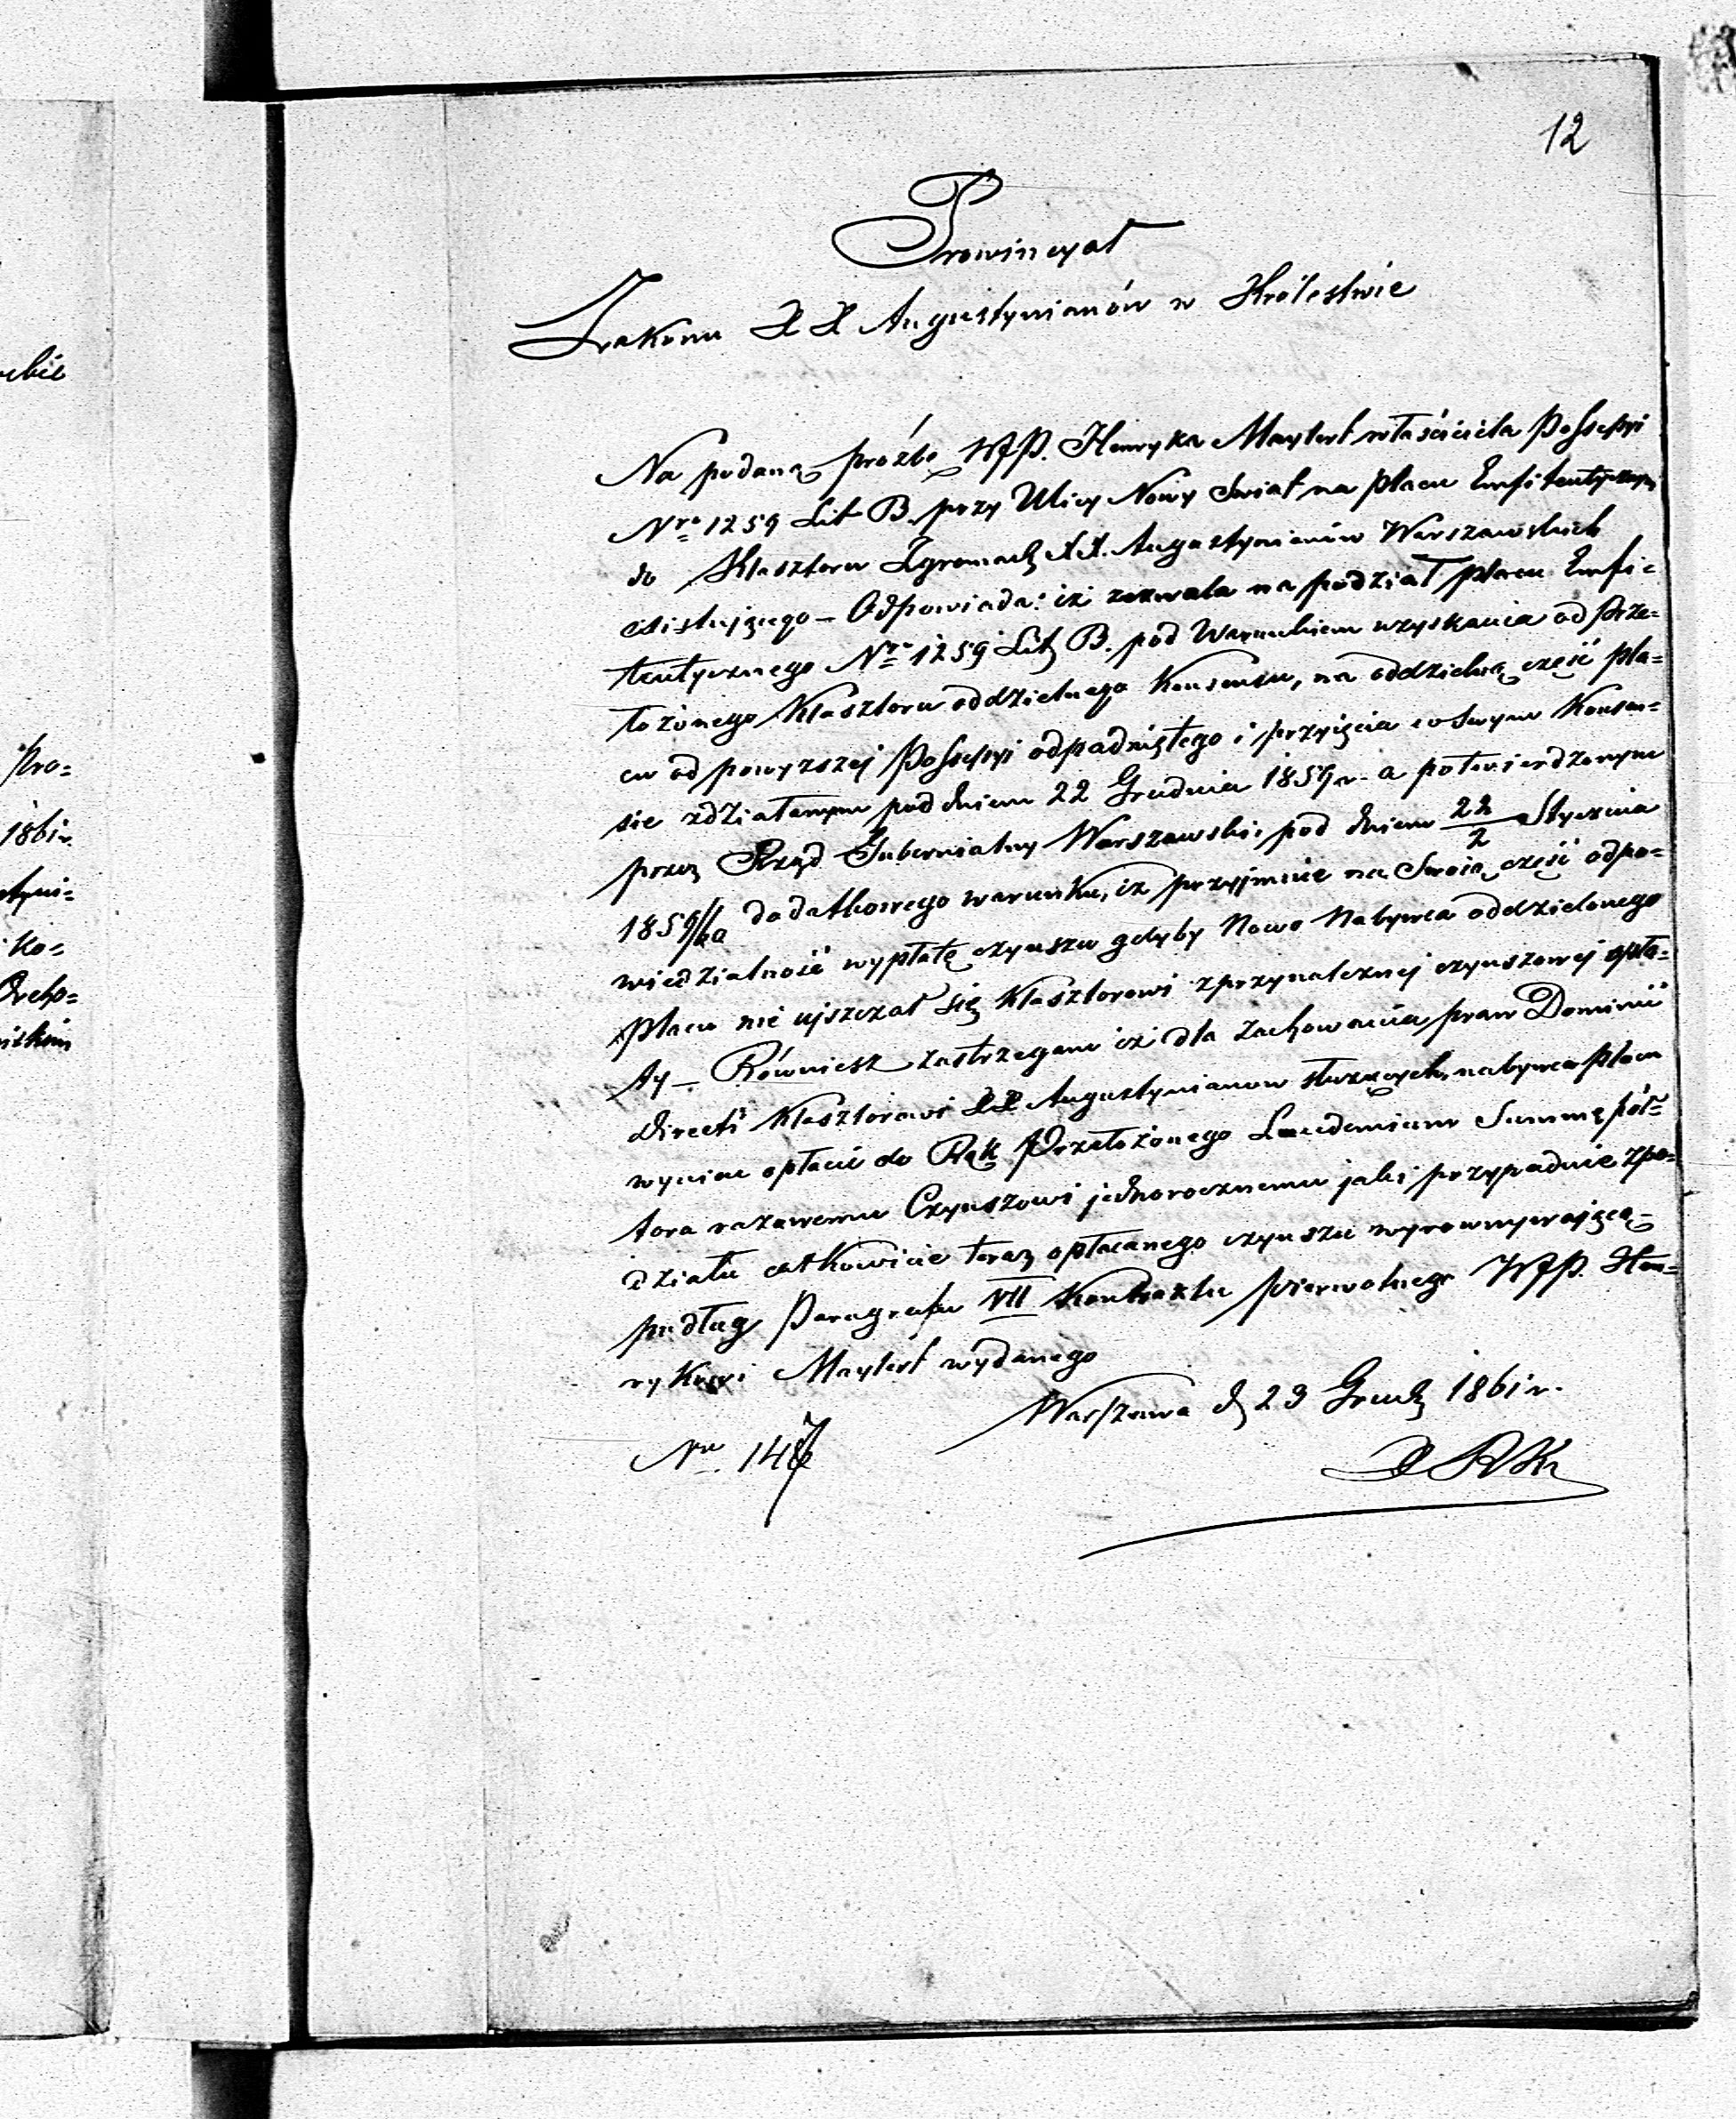 12
Prowincyał
Zakonu XX Augustynianów w Królestwie
Na podaną prożbę WJP. Henryka Maytert właściciela Possessyi
Nro 1259 Lit B. przy Ulicy Nowy Swiat na placu Emfiteutycznym
do Klasztoru Zgromadz XX. Augustynianów Warszawskich
Odpowiada: iż zezwala na podział placu Emfi=
teutycznego Nro 1259 Lit B. pod Warunkiem uzyskania od Prze=
łożonego Klasztoru oddzielnego Konsensu, na oddzielną część pla=
cu od powyższej Possessyi odpadniętego i przyięcia w Swym Konsen=
sie zdziałanym pod dniem 22 Grudnia 1859 r. a potwierdzonym
przez Rząd Gubernialny Warszawski pod dniem Stycznia
1859/60 dodatkowego warunku, iż przyjmuie na Swoią część odpo=
wiedzialność wypłatę czynszu gdyby Nowo Nabywca oddzielonego
Placu nie ujszczał się Klasztorowi zprzynależnej czynszowej opła=
ty — Równiesz zastrzegam iż dla zachowania praw Dominii
Directi Klasztorowi XX Augustynianow służących, nabywca placu
wynien opłacić do Rąk Przełożonego Laudemium Summę pół=
tora razowemu Czynszowi jednorocznemu jaki przypadnie zpo=
działu całkowicie teraz opłacanego czynszu wyrownywającą
podług Paragrafu VII Kontraktu pierwotnego WJP. Hen=
rykowi Maytert wydanego
Warszawa d 23 Grudz 1861 r.
Nro
ebie
Pro=
1861 r.
Ko=